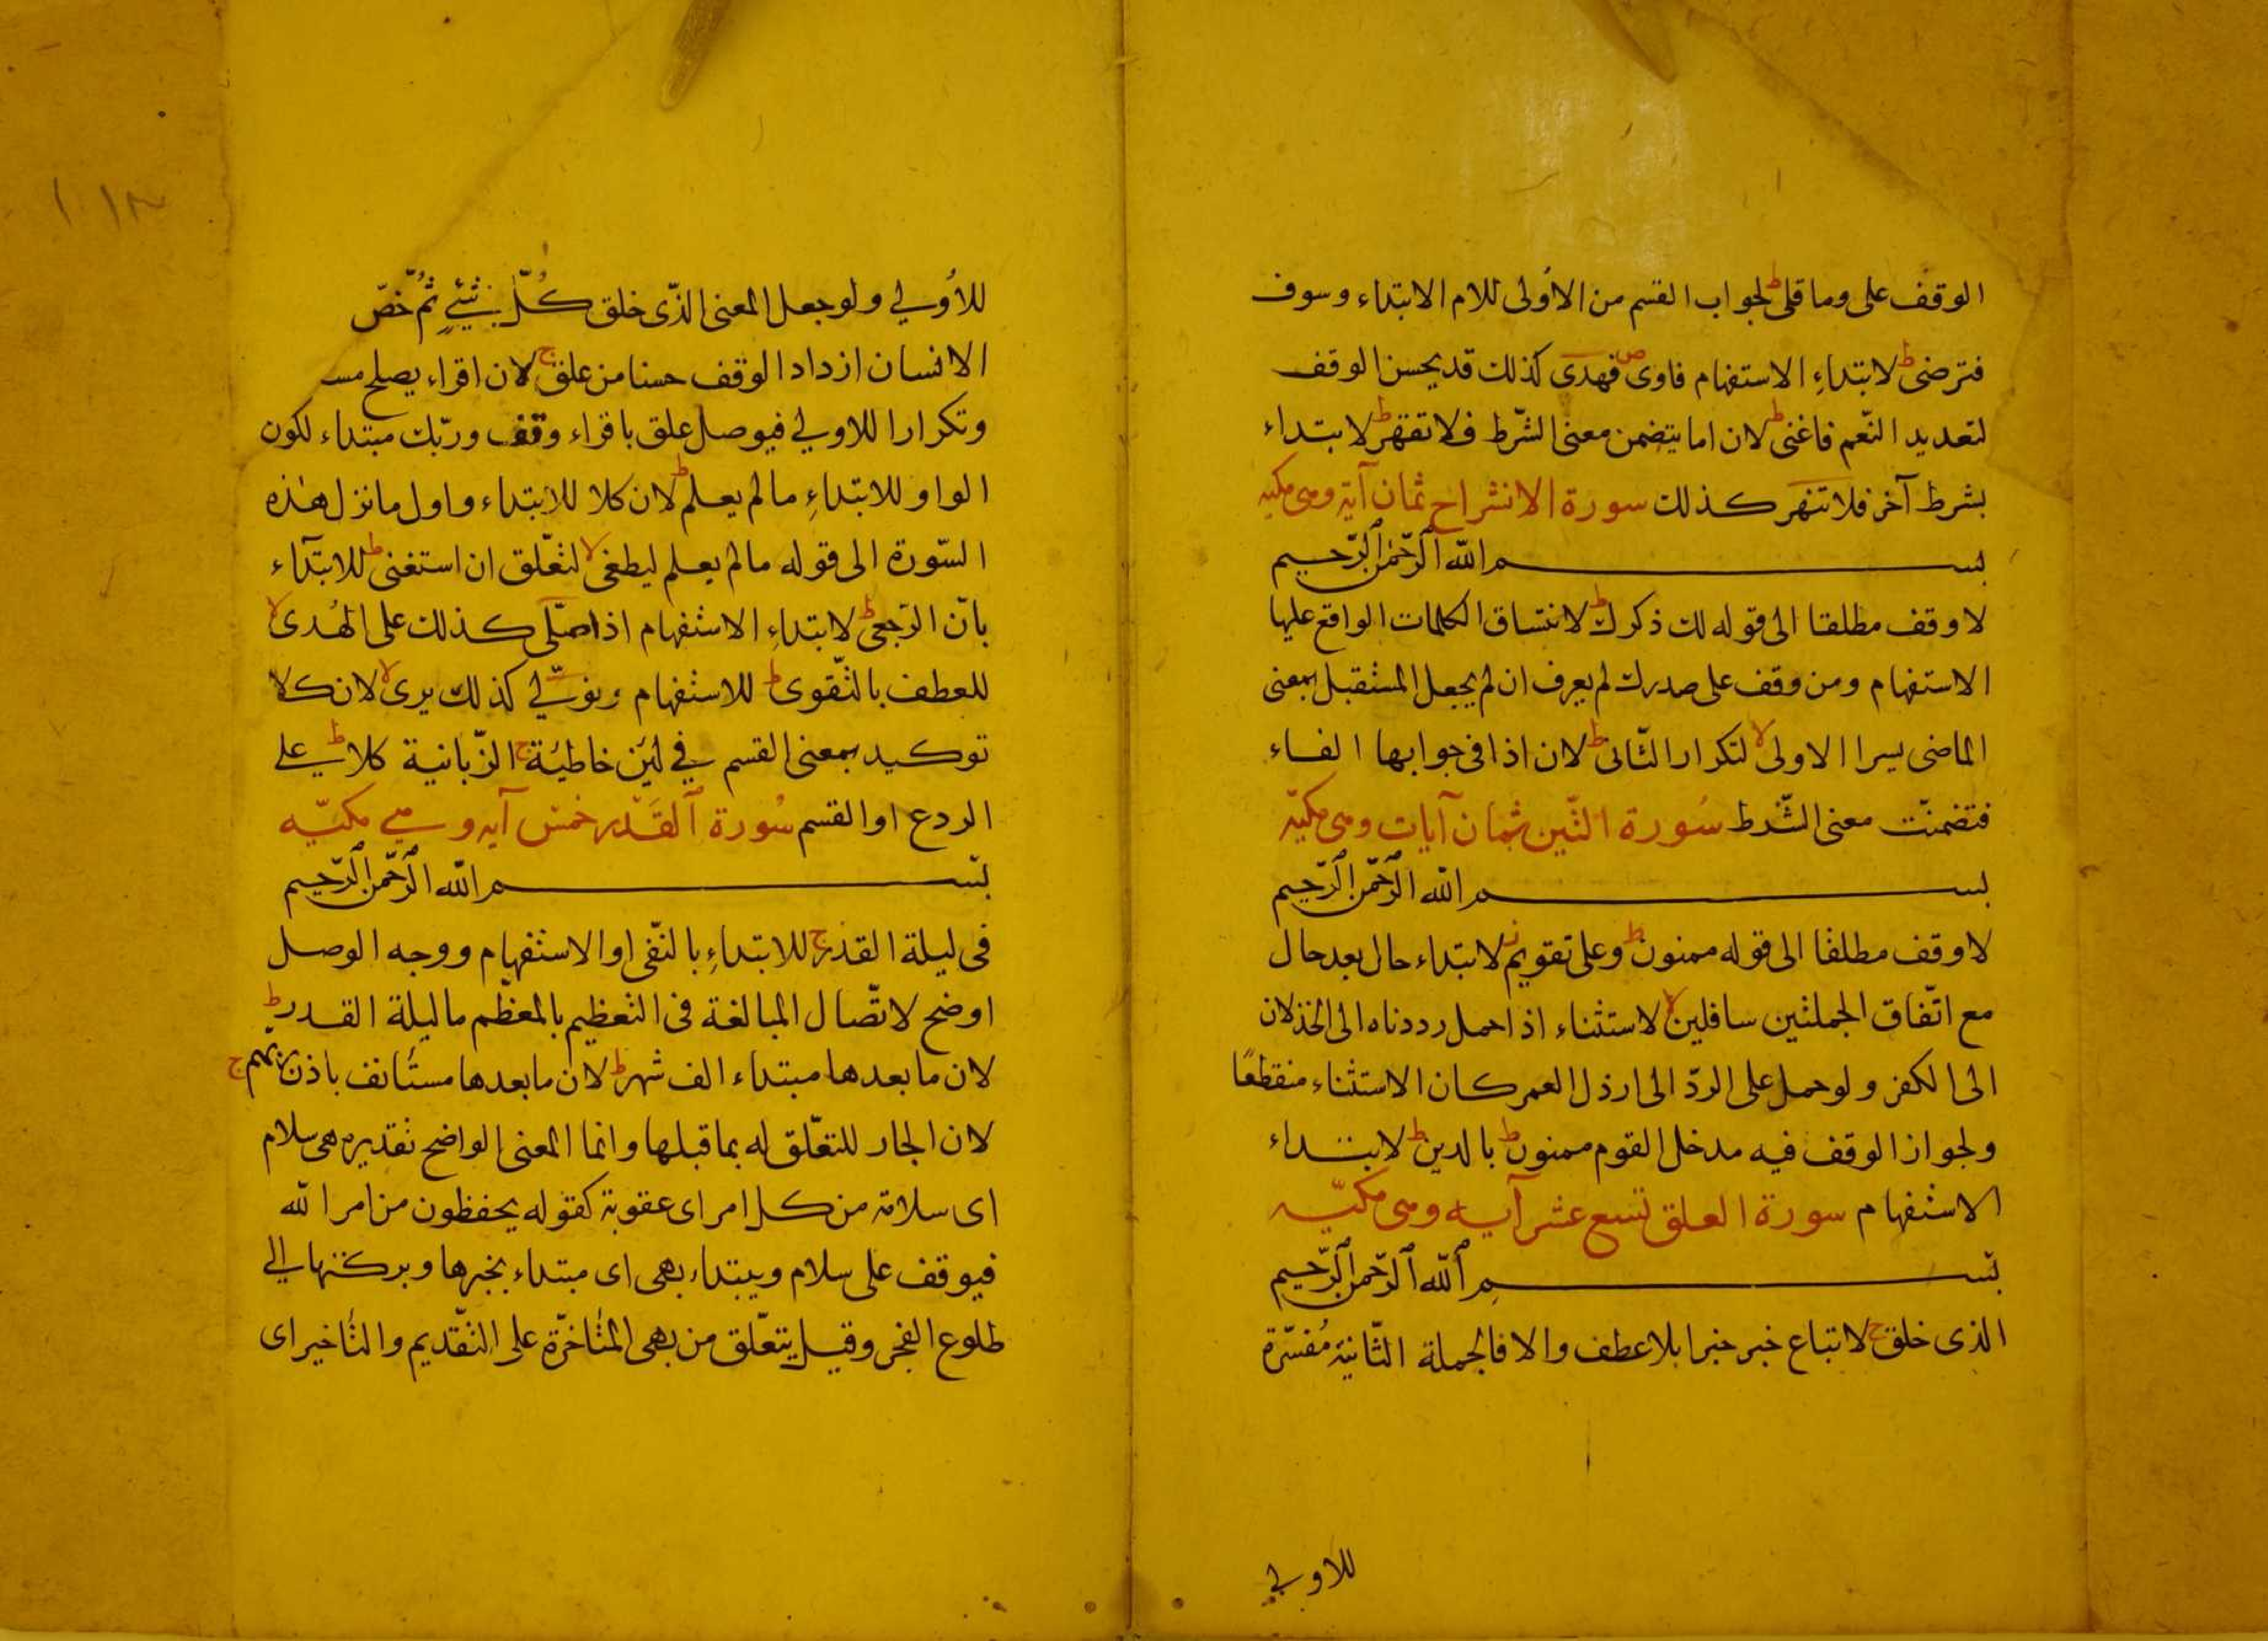 الوقف على وما قلى ط لجواب القسم من الاولى للام الابتداء وسوف
فترضى ط لابتداء الاستفهام فاوى ص فهدى كذلك قد يحسن الوقف
لتعديد النّعم فاغنى ط لان اما يتضمن معنى الشّرط فلا تقهر ط لابتداء
بشرط آخر فلا تنهر كذلك سورة الانشراح ثمان آية وهى مكيه
بسم الله الرّحمن الرّحيم
لا وقف مطلقا الى قوله لك ذكرك ط لانتساق الكلمات الواقع عليها
الاستفهام ومن وقف على صدرك لم يعرف ان لم يجعل المستقبل بمعنى
الماضى يسرا الاولى لا لتكرار الثّانى ط لان اذا فى جوابها الفاء
فتضمنّت معنى الشّرط سُورة التّين ثمان آيات وهى مكيّه
بسم الله الرّحمن الرّحيم
لا وقف مطلقا الى قوله ممنون ط وعلى تقويم ز لابتداء حال بعد حال
مع اتّفاق الجملتين سافلين لا لاستثناء اذا حمل رددناه الى الخذلان
الى الكفر ولو حمل على الردّ الى ارذل العمر كان الاستثناء منقطعًا
ولجواز الوقف فيه مدخل القوم ممنون ط بالدين ط لابتداء
الاستفهام سورة العلق تسع عشر آيه وهى مكيّه
بسم الله الرّحمن الرّحيم
الذى خلق ج لاتباع خبر خبرا بلا عطف والا فالجملة الثّانية مُفسّرة
للاولي
للاُولي ولو جعل المعنى الذّى خلق كُلّ شيءٍ ثُمّ خصّ
الانسان ازداد الوقف حسنا من علق ج لان اقراء يصلح
وتكرارا للاولي فيوصل علق باقراء وقف وربّك مبتداء لكون
الواو للابتداءِ ما لم يعلم ط لان كلا للابتداء واول ما نزل هذه
السّورة الى قوله ما لم يعلم ليطغى لا لتعّلق ان استغنى ط للابتدآء
بانّ الرّجعى ط لابتداءِ الاستفهام اذا صلّى كذلك على الهُدى لا
للعطف بالتّقوى ط للاستفهام وتولّي كذلك يرى لا لان كلا
توكيد بمعنى القسم في لئن خاطئة ج الزّبانية كلا ط علي
الردع او القسم سُورة القَدْر خمس آيه وهي مكيّه
بسم الله الرّحمن الرّحيم
فى ليلة القدر ج للابتداءِ بالنّفى او الاستفهام ووجه الوصل
اوضح لاتّصال المبالغة فى التعظيم بالمعظّم ما ليلة القدر ط
لان ما بعدها مبتداء الف شهر ط لان ما بعدها مستانف باذن ربهم ج
لان الجار للتعّلق له بما قبلها وانما المعنى الواضح تقديره هى سلام
اى سلامة من كل امر اى عقوبة كقوله يحفظون من امر الله
فيوقف على سلام ويبتداء بهى اى مبتداء بخبرها وبركتها الي
طلوع الفجر وقيل يتعّلق من بهى المُتاخرّة على التّقديم والتّأخير اى